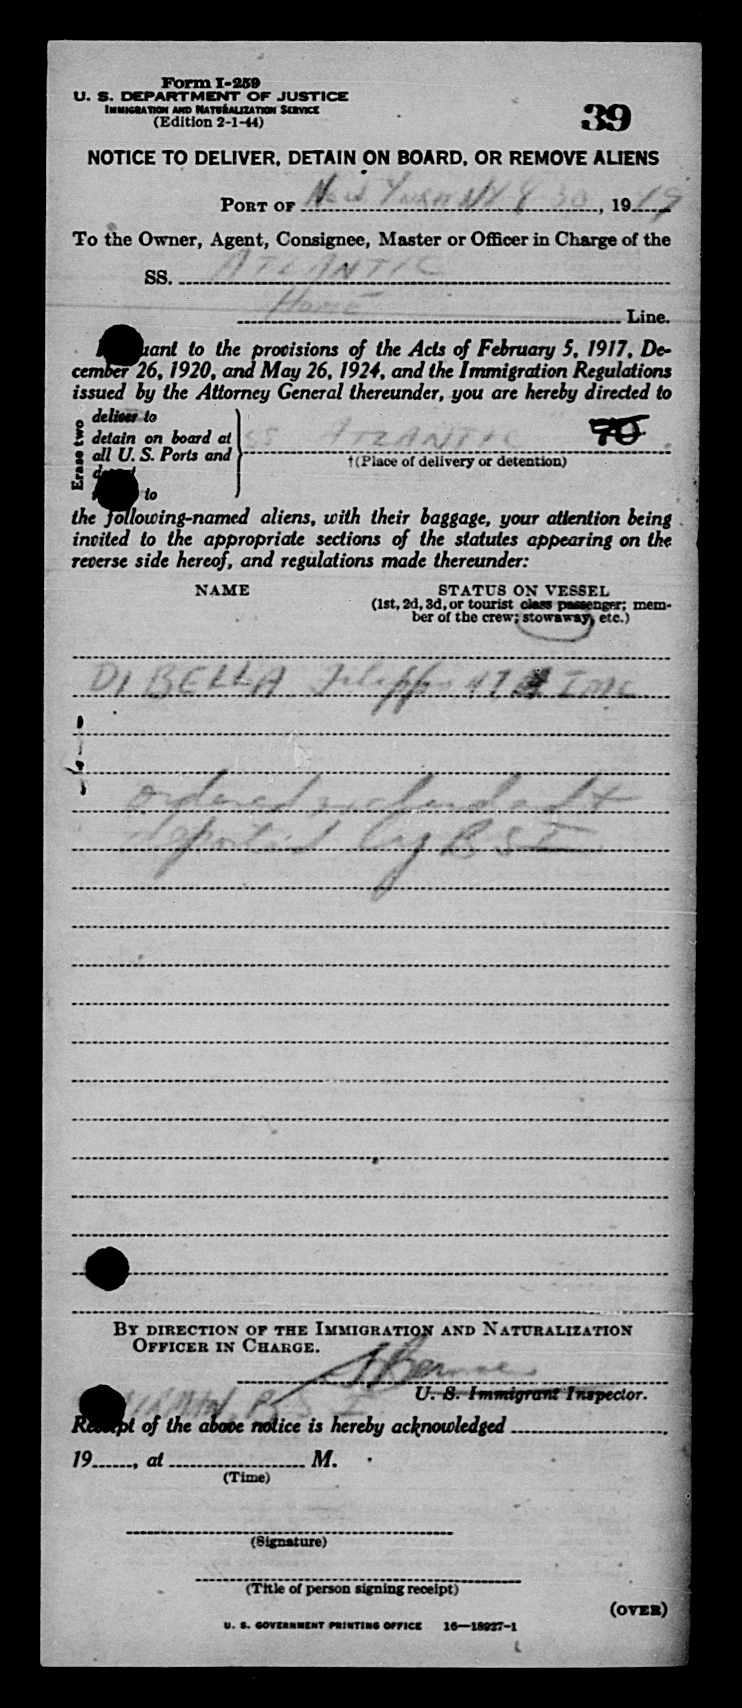 Form I-259
U. S. DEPARTMENT OF JUSTICE
IMMIGRATION AND NATURALIZATION SERVICE
(Edition 2-1-44)
39
NOTICE TO DELIVER, DETAIN ON BOARD, OR REMOVE ALIENS
PORT OF New York NY 9-30, 1949
To the Owner, Agent, Consignee, Master or Officer in Charge of the
SS. ATLANTIC
Home Line.
uant to the provisions of the Acts of February 5, 1917, De-
cember 26, 1920, and May 26, 1924, and the Immigration Regulations
issued by the Attorney General thereunder, you are hereby directed to
Erase two
deliver to
detain on board at
all U. S. Ports and
to
SS ATLANTIC 70
†(Place of delivery or detention)
the following-named aliens, with their baggage, your attention being
invited to the appropriate sections of the statutes appearing on the
reverse side hereof, and regulations made thereunder:
NAME STATUS ON VESSEL
(1st, 2d, 3d, or tourist class passenger; mem-
ber of the crew; stowaway, etc.)
DI BELLA Filippo 47
ordered excluded and
deported by BSI
BY DIRECTION OF THE IMMIGRATION AND NATURALIZATION
OFFICER IN CHARGE.
U. S. Immigrant Inspector.
BSI
Receipt of the above notice is hereby acknowledged
19, at M.
(Time)
(Signature)
(Title of person signing receipt)
(OVER)
U. S. GOVERNMENT PRINTING OFFICE 16—18927-1